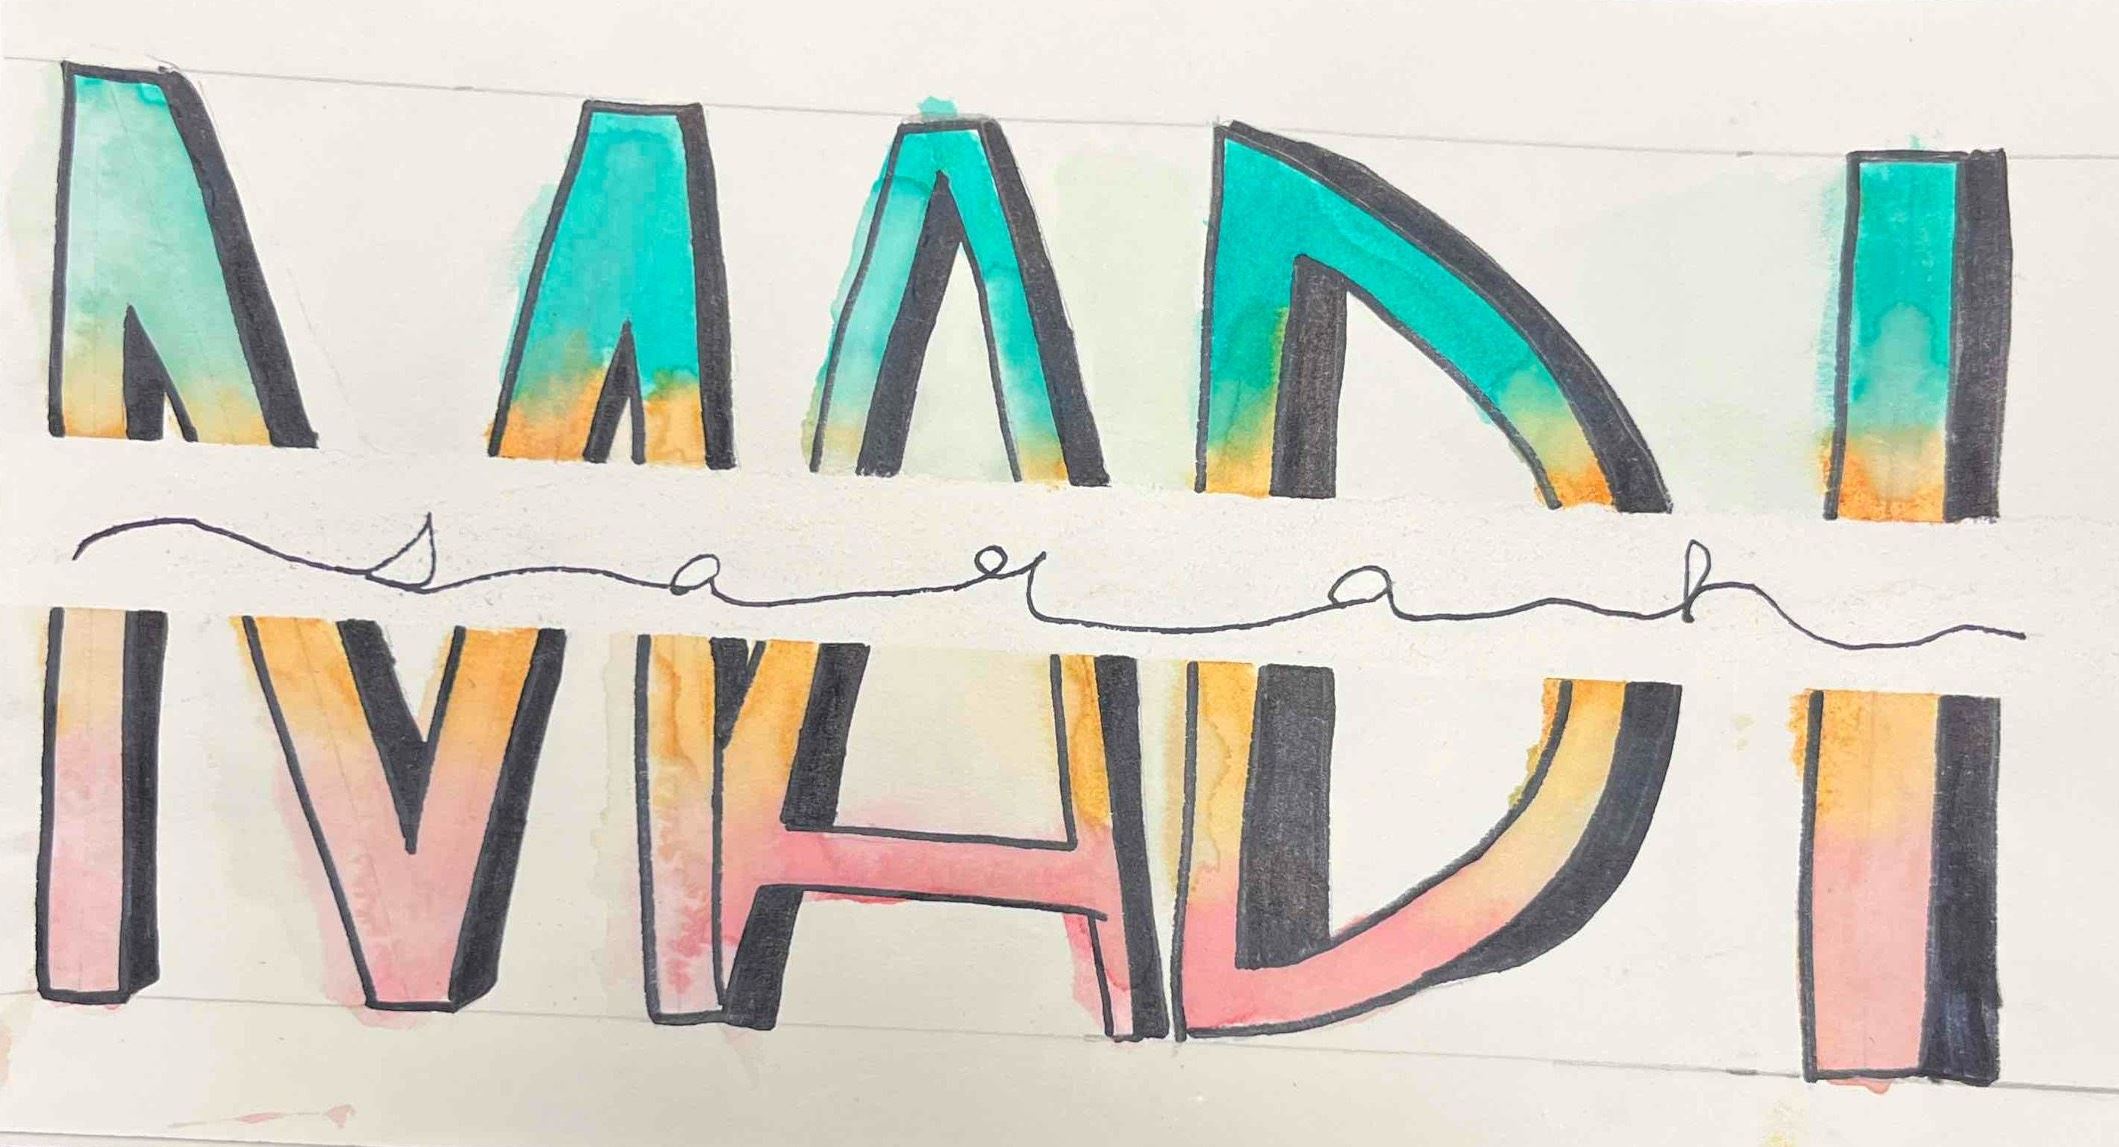 MADI
sarah